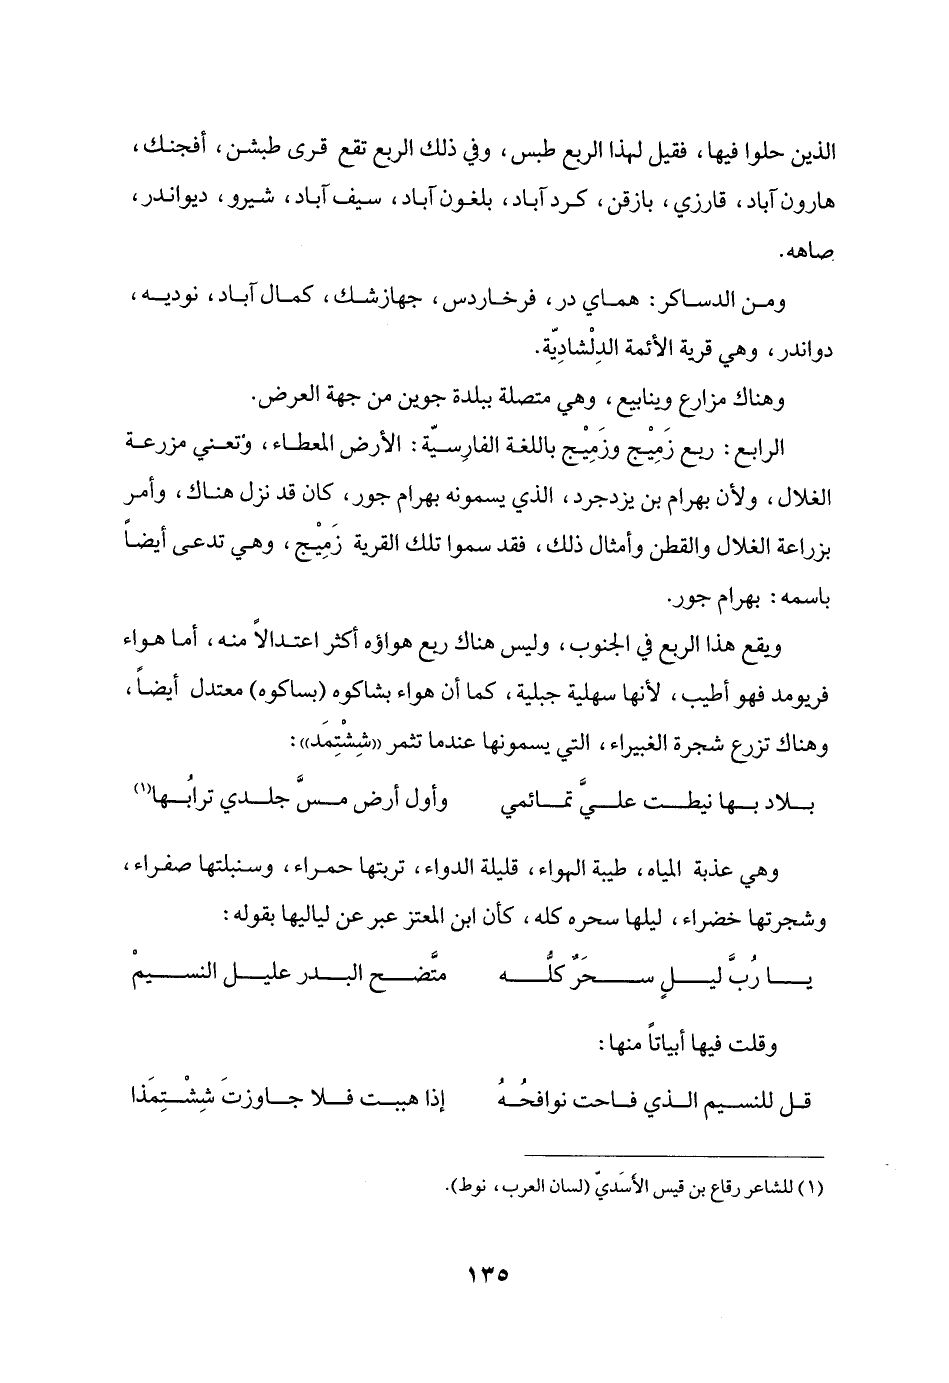 الذين حلوا فيها، فقيل لهذا الربع طبس، وفي ذلك الربع تقع قرى طبشن، أفجنك،
هارون آباد، قارزي، بازقن، كرد آباد، بلغون آباد، سيف آباد، شيرو، ديواندر،
صاهه.
ومن الدساكر: هماي در، فرخاردس، جهازشك، كمال آباد، نوديه،
دواندر، وهي قرية الأئمة الدِلْشادِيّة.
وهناك مزارع وينابيع، وهي متصلة ببلدة جوين من جهة العرض.
الرابع: ربع زَمِيْج وزَمِيْج باللغة الفارسيّة: الأرض المعطاء، وتعني مزرعة
الغلال، ولأن بهرام بن يزدجرد، الذي يسمونه بهرام جور، كان قد نزل هناك، وأمر
بزراعة الغلال والقطن وأمثال ذلك، فقد سموا تلك القرية زَمِيْج، وهي تدعى أيضاً
باسمه: بهرام جور.
ويقع هذا الربع في الجنوب، وليس هناك ربع هواؤه أكثر اعتدالاً منه، أما هواء
فريومد فهو أطيب، لأنها سهلية جبلية، كما أن هواء بشاكوه (بساكوه) معتدل أيضاً،
وهناك تزرع شجرة الغبيراء، التي يسمونها عندما تثمر «شِشْتِمَد»:
بلاد بها نيطت عليَّ تمائمي وأول أرض مسَّ جلدي ترابُها(١)
وهي عذبة المياه، طيبة الهواء، قليلة الدواء، تربتها حمراء، وسنبلتها صفراء،
وشجرتها خضراء، ليلها سحره كله، كأن ابن المعتز عبر عن لياليها بقوله:
يا رُبَّ ليلٍ سَحَرٌ كلُّه متَّضح البدر عليل النسيمْ
وقلت فيها أبياتاً منها:
قل للنسيم الذي فاحت نوافحُهُ إذا هببت فلا جاوزتَ شِشْتِمَذا
(١) للشاعر رقاع بن قيس الأسَديّ (لسان العرب، نوط).
١٣٥